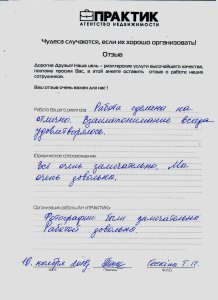 ПРАКТИК
АГЕНТСТВО НЕДВИЖИМОСТИ
Чудеса случаются, если их хорошо организовать!
Отзыв
Дорогие Друзья! Наша цель - риэлторские услуги высочайшего качества,
поэтому просим Вас, в этой анкете оставить отзыв о работе наших
сотрудников.
Ваш отзыв очень важен для нас!
Работа Вашего риелтора: Работа сделана на
отлично. Взаимопонимание всегда
удовлетворялось.
Юридическое сопровождение:
Всё очень замечательно. Мы
очень довольны.
Организация работы АН «ПРАКТИК»:
Фотографии были замечательно.
Работой довольна.
10. ноября
Дата
Подпись
Ф.И.О.